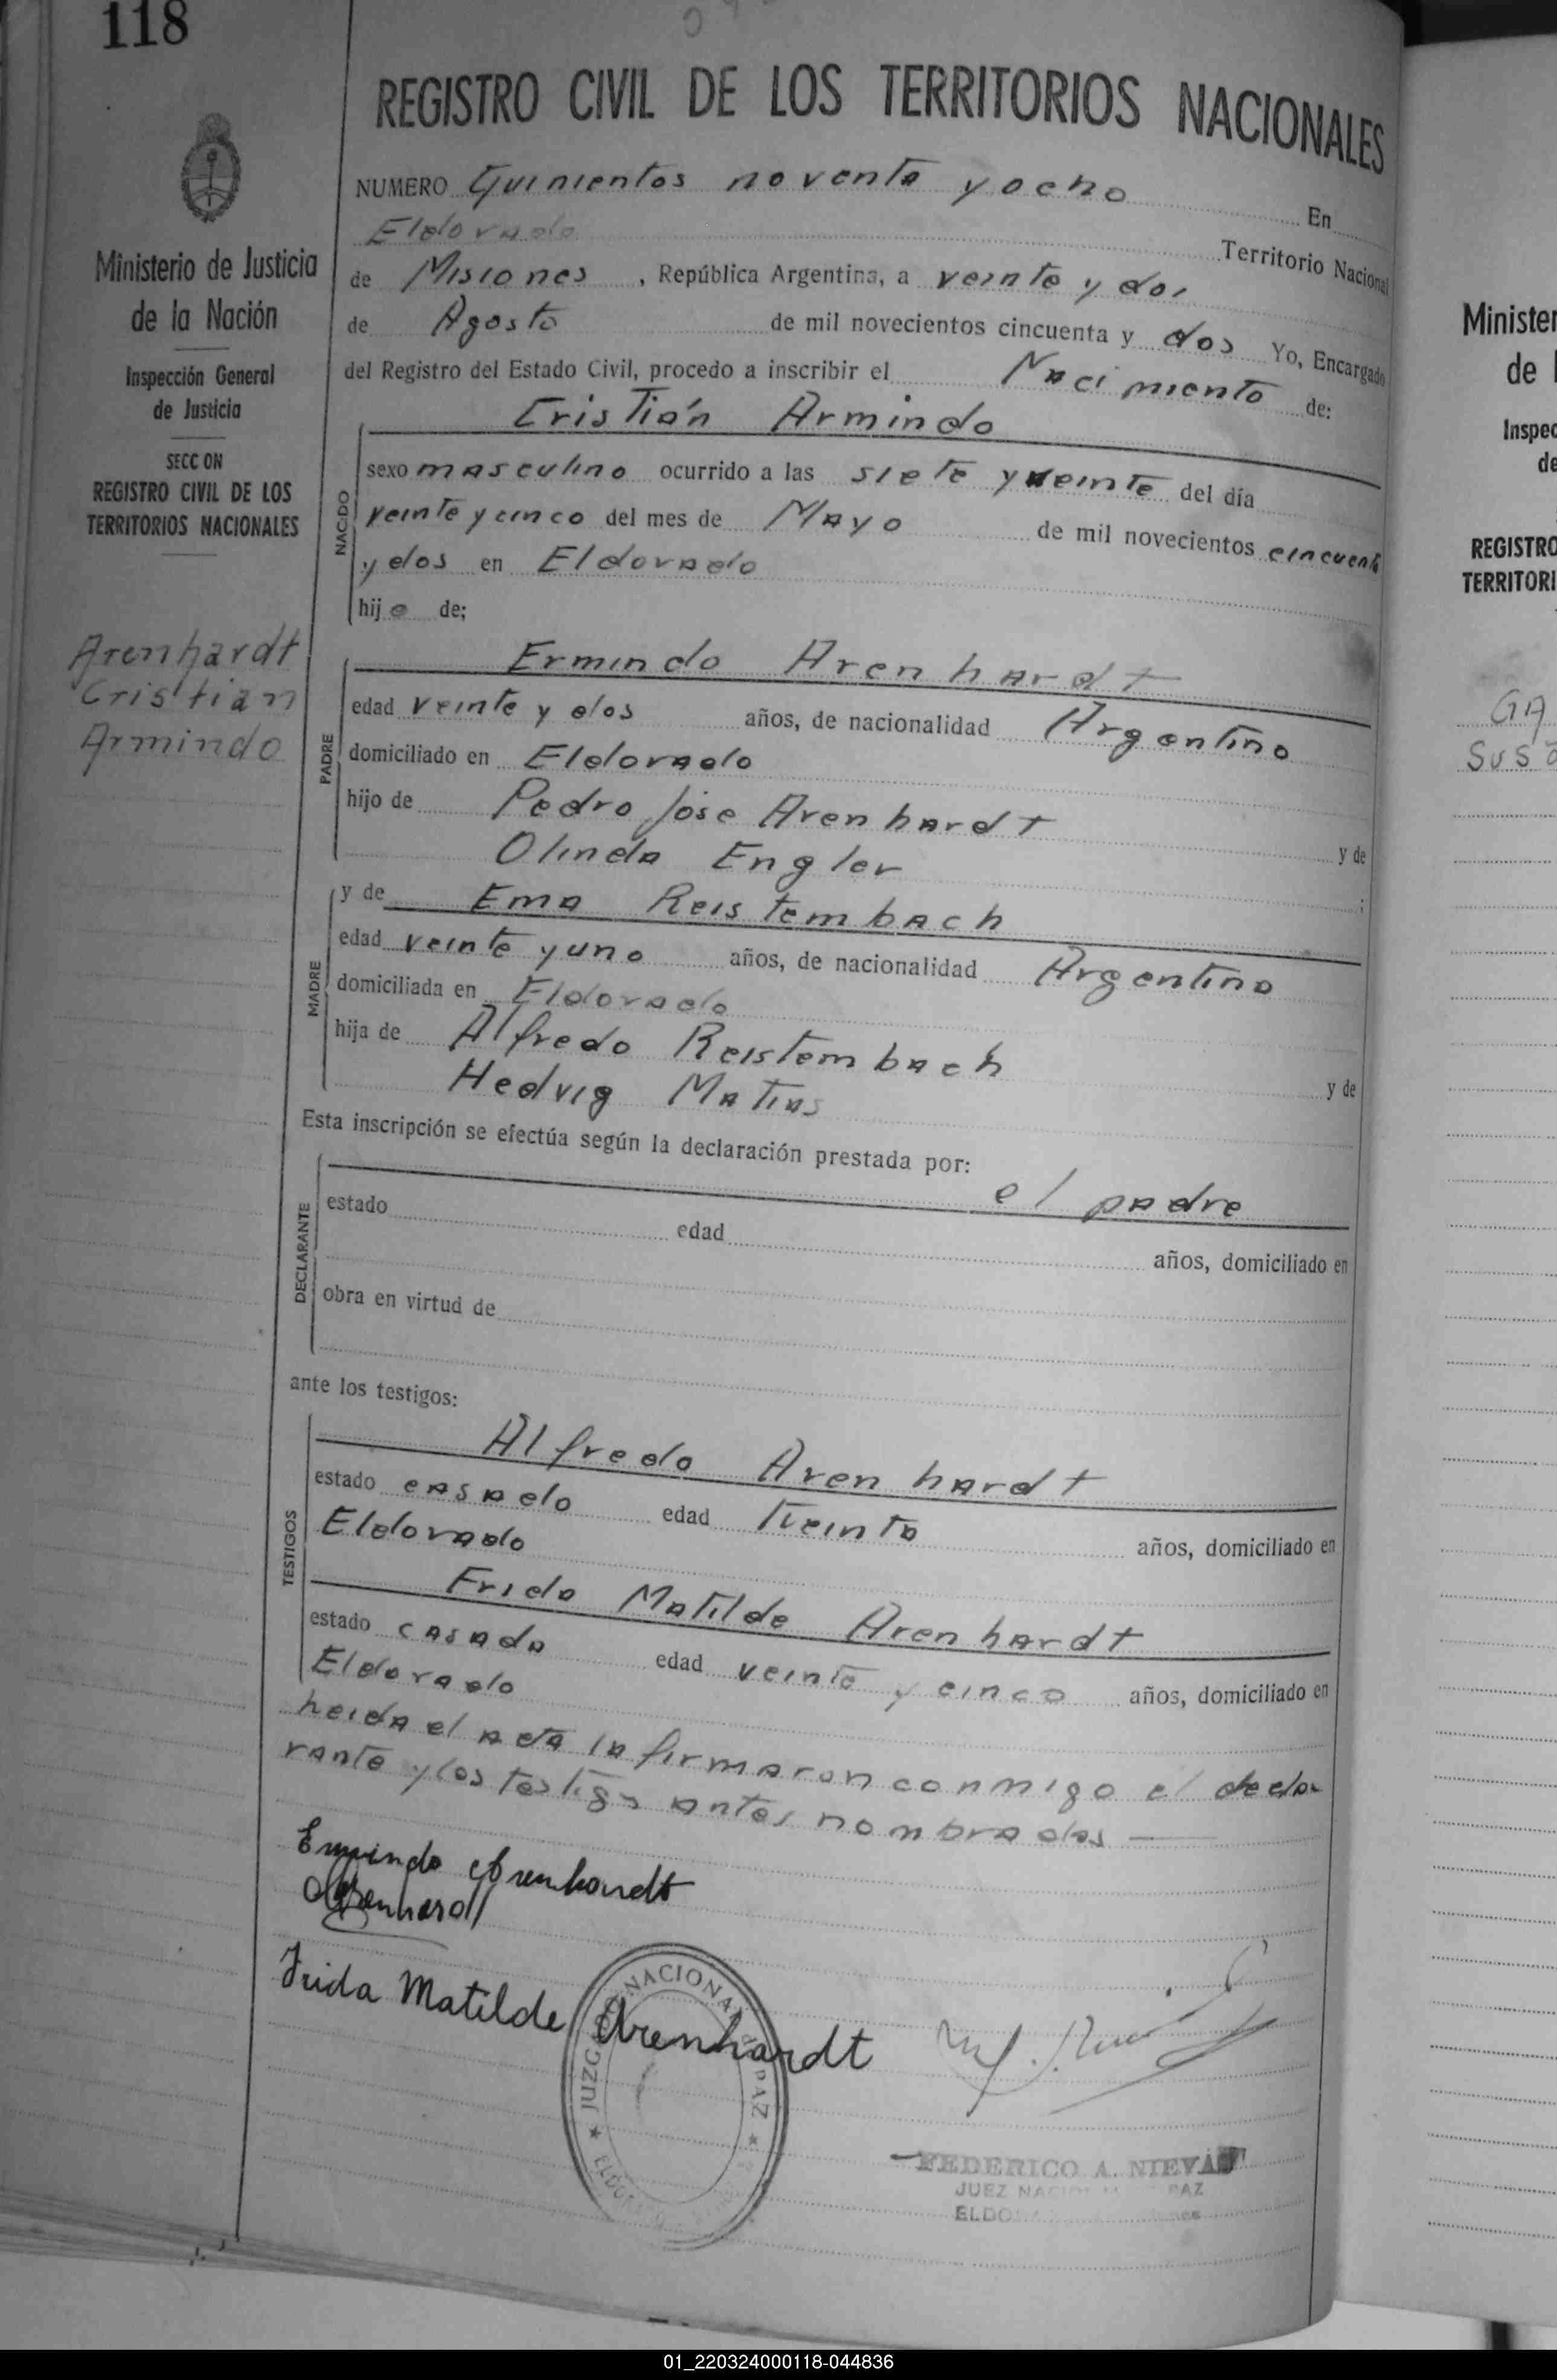 118
REGISTRO CIVIL DE LOS TERRITORIOS NACIONALES
Ministerio de Justicia
de la Nación
Inspección General
de Justicia
SECC ON
REGISTRO CIVIL DE LOS
TERRITORIOS NACIONALES
Arenhardt
Cristian
Armindo
NUMERO Quinientos noventa y ocho En
Eldorado Territorio Nacional
de Misiones , República Argentina, a veinte y dos
de Agosto de mil novecientos cincuenta y dos Yo, Encargado
del Registro del Estado Civil, procedo a inscribir el Nacimiento de:
Cristián Armindo
NACIDO
sexo masculino ocurrido a las siete y veinte del día
veinte y cinco del mes de Mayo de mil novecientos cincuenta
y dos en Eldorado
hijo de;
Ermindo Arenhardt
PADRE
edad veinte y dos años, de nacionalidad Argentino
domiciliado en Eldorado
hijo de Pedro Jose Arenhardt y de
Olinda Engler ;
y de Ema Reistembach
MADRE
edad veinte y uno años, de nacionalidad Argentina
domiciliada en Eldorado
hija de Alfredo Reistembach y de
Hedvig Matias
Esta inscripción se efectúa según la declaración prestada por:
el padre
DECLARANTE
estado edad años, domiciliado en
obra en virtud de
ante los testigos:
Alfredo Arenhardt
TESTIGOS
estado casado edad treinta años, domiciliado en
Eldorado
Frida Matilde Arenhardt
estado casada edad veinte y cinco años, domiciliado en
Eldorado
Leida el acta la firmaron conmigo el decla
rante y los testigos antes nombrados —
Ermindo Arenhardt
Arenhardt
Frida Matilde Arenhardt
JUZGADO NACIONAL DE PAZ
ELDORADO
FEDERICO A. NIEVAS
JUEZ NACIONAL PAZ
ELDO
Minister
de l
Inspec
de
REGISTRO
TERRITORI
GA
Susa
01_220324000118-044836